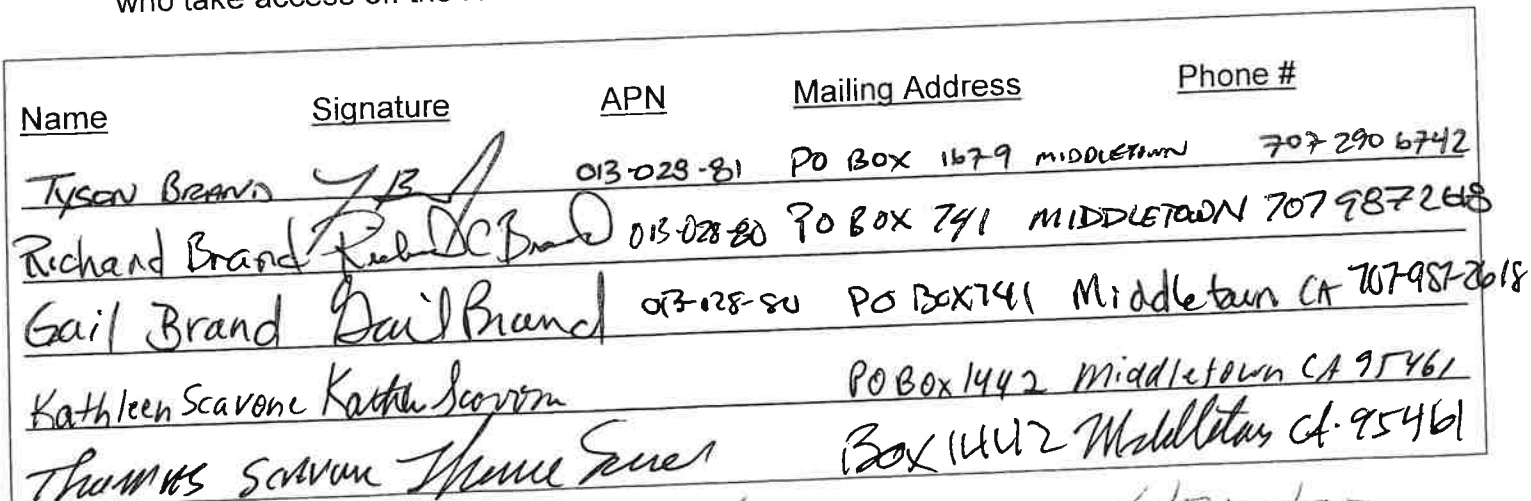 who take access off the
Name Signature APN Mailing Address Phone #
TYSON BRAND TB 013-028-81 PO BOX 1679 MIDDLETOWN 707 290 6742
Richard Brand Richard C Brand 013-028-80 PO BOX 741 MIDDLETOWN 707 987 2618
Gail Brand Gail Brand 013-028-80 PO BOX 741 Middletown CA 707-987-2618
Kathleen Scavone Kathleen Scavone PO Box 1442 Middletown CA 95461
Thomas Scavone Box 1442 Middletown CA. 95461